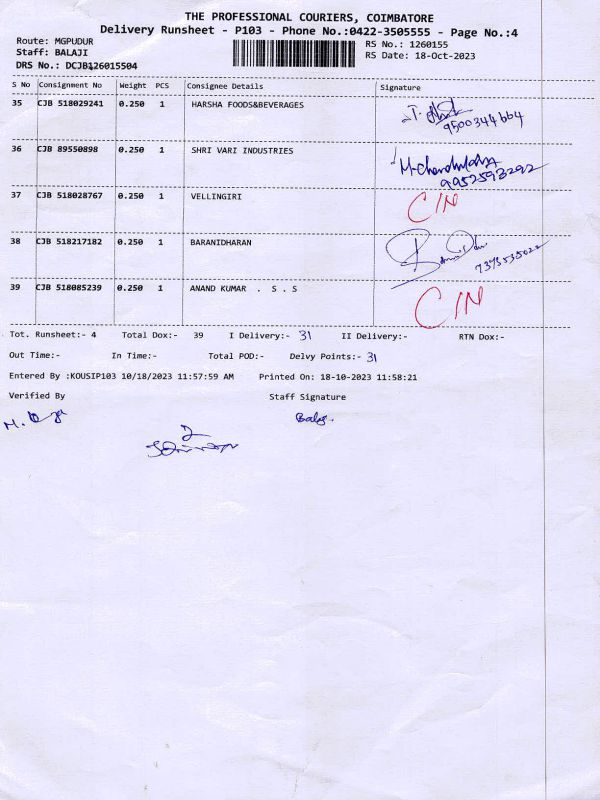 THE PROFESSIONAL COURIERS, COIMBATORE
Delivery Runsheet - P103 - Phone No.:0422-3505555 - Page No.:4
Route: MGPUDUR RS No.: 1260155
Staff: BALAJI RS Date: 18-Oct-2023
DRS No.: DCJB126015504
S No Consignment No Weight PCS Consignee Details Signature
35 CJB 518029241 0.250 1 HARSHA FOODS&BEVERAGES
9500344664
36 CJB 89550898 0.250 1 SHRI VARI INDUSTRIES
9952593292
37 CJB 518028767 0.250 1 VELLINGIRI C/N
38 CJB 518217182 0.250 1 BARANIDHARAN
7373535022
39 CJB 518085239 0.250 1 ANAND KUMAR . S . S C/N
Tot. Runsheet:- 4 Total Dox:- 39 I Delivery:- 31 II Delivery:- RTN Dox:-
Out Time:- In Time:- Total POD:- Delvy Points:- 31
Entered By :KOUSIP103 10/18/2023 11:57:59 AM Printed On: 18-10-2023 11:58:21
Verified By Staff Signature